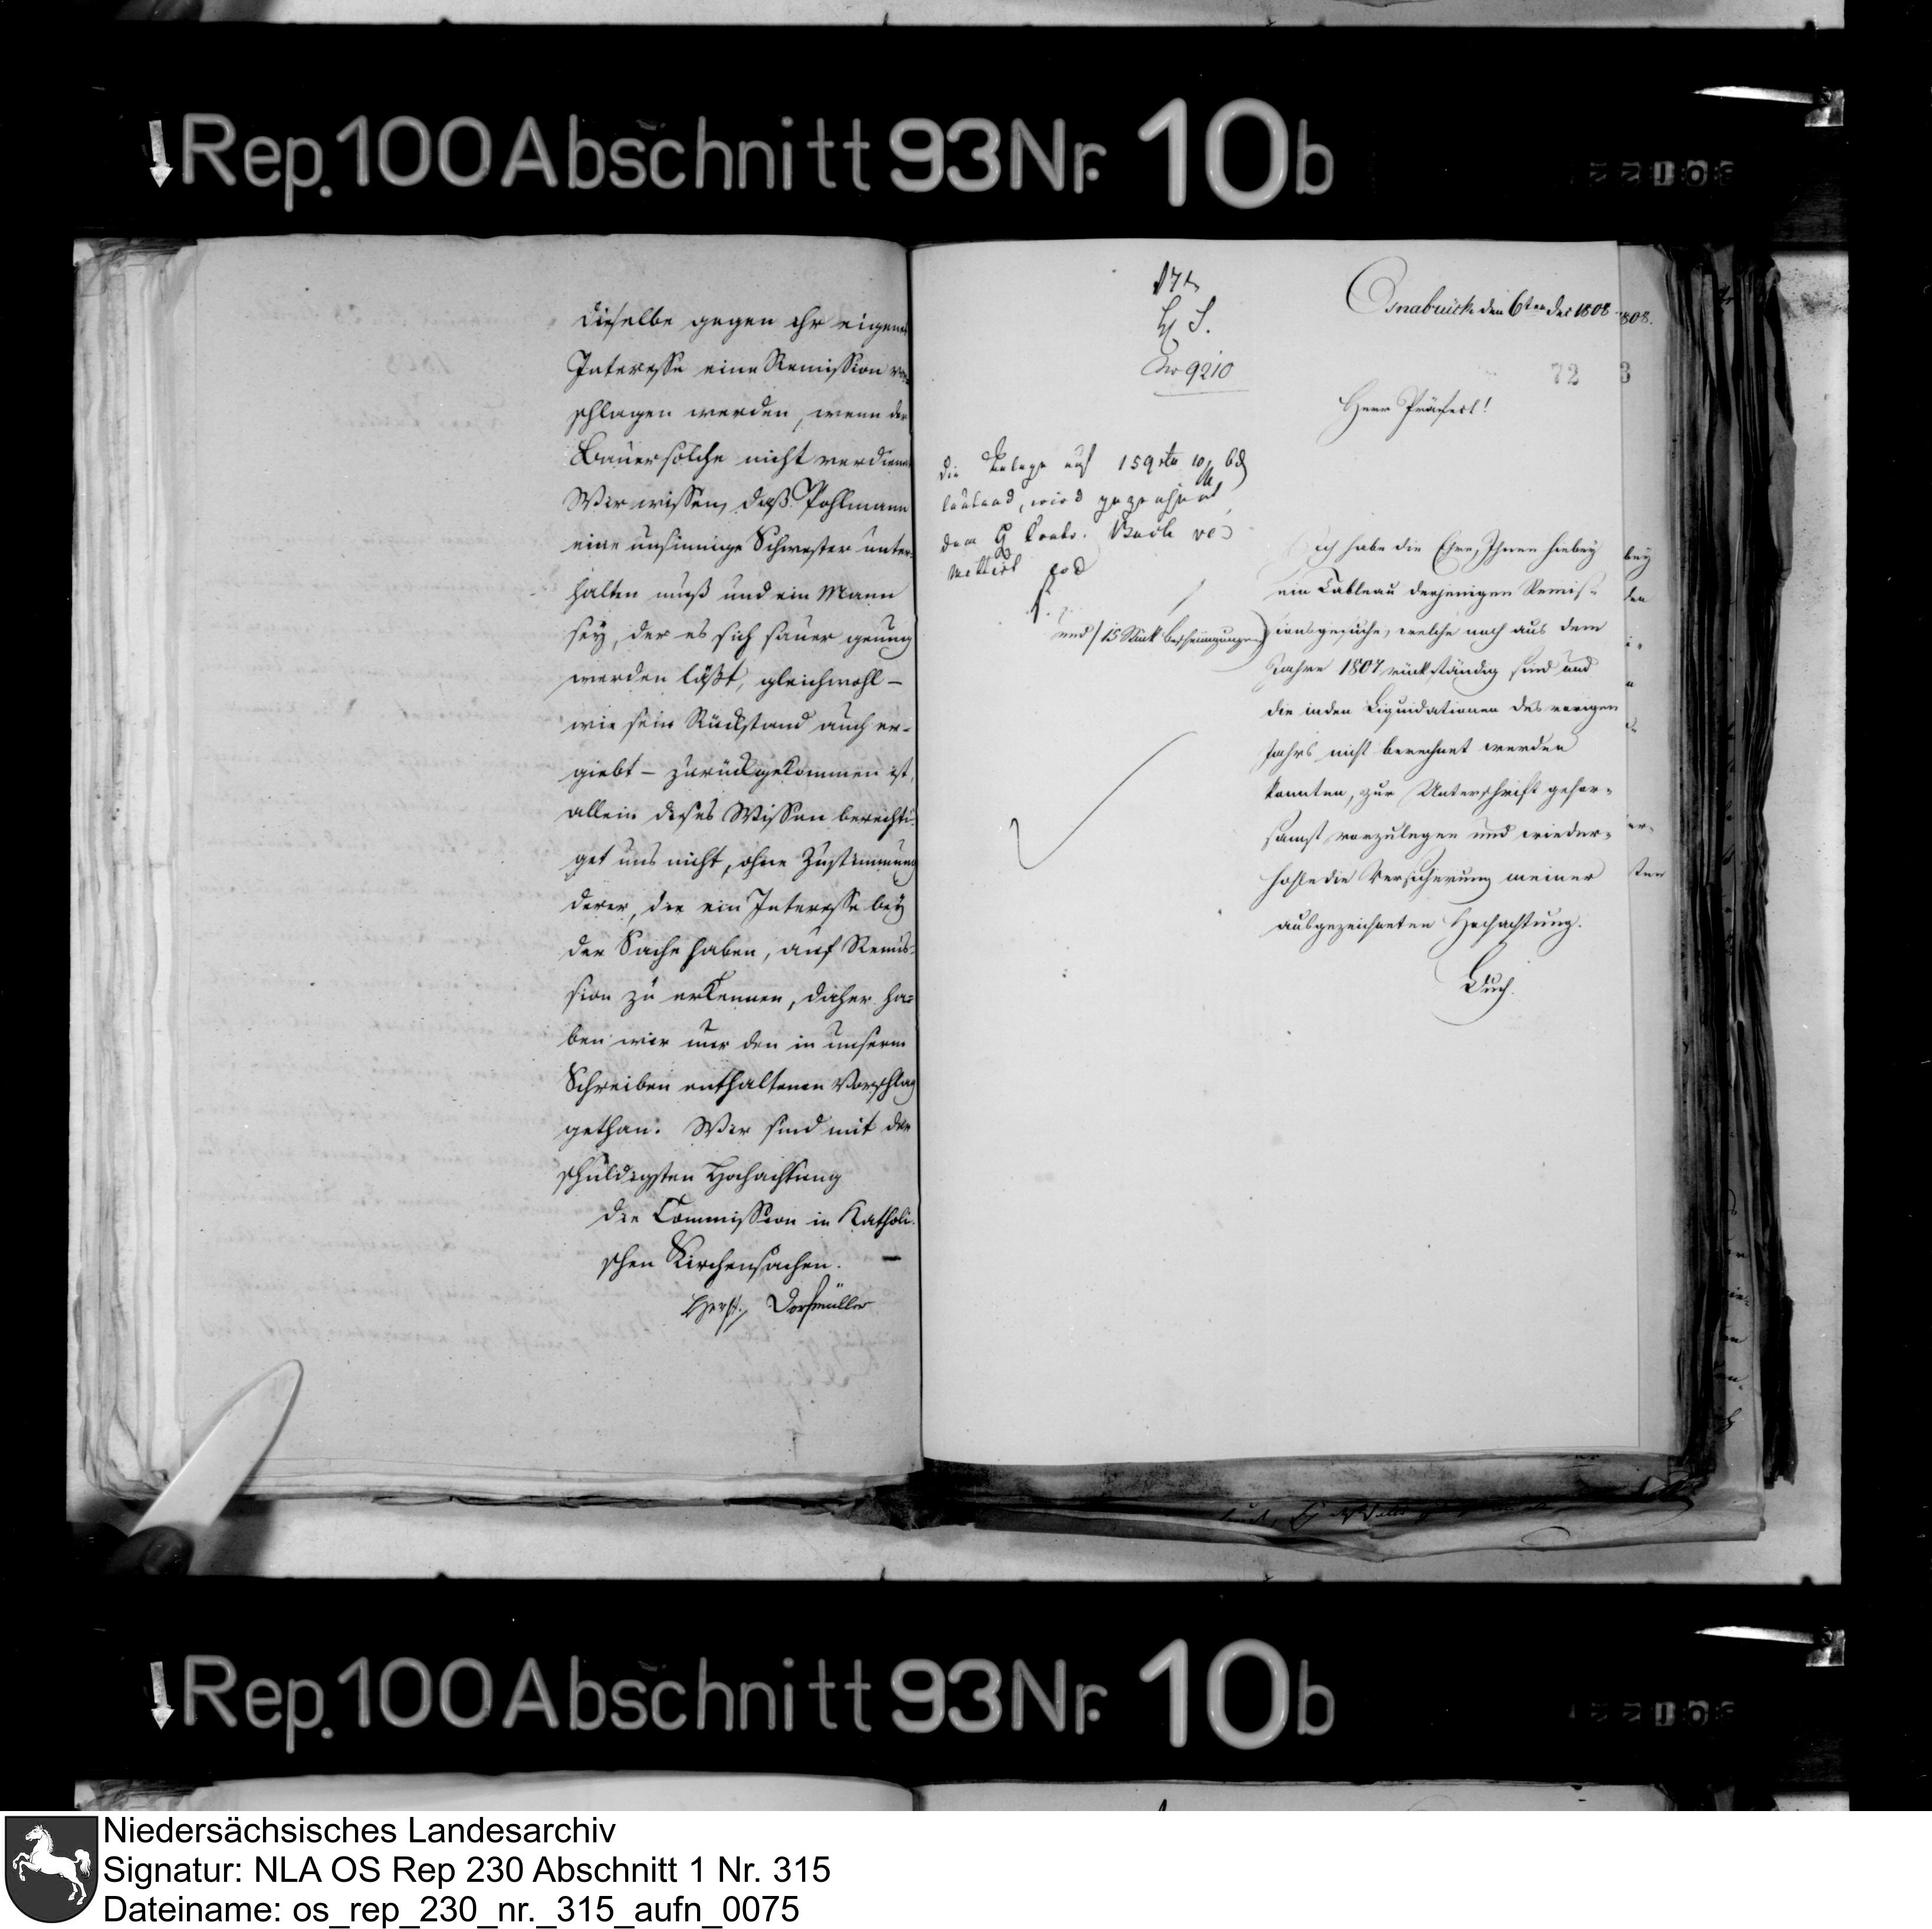 Rep. 100 Abschnitt 93 Nr. 10b
dieselbe gegen ihr eigenes
Interesse eine Remission vor
schlagen werden, wenn der
Bauer solche nicht verdiene.
Wir wissen, daß Pohlmann
eine unsinnige Schwester unter
halten muß und ein Mann
sey, der es sich sauer genung
werden läßt, gleichwohl –
wie sein Rückstand auch er-
giebt – zurückgekommen ist,
allein dieses Wissen berechti-
get uns nicht, ohne Zustimmung
derer, die ein Interesse bey
der Sache haben, auf Remis-
sion zu erkennen, daher ha-
ben wir nur den in unserm
Schreiben enthaltenen Vorschlag
gethan. Wir sind mit der
schuldigsten Hochachtung
die Commission in Katholi-
schen Kirchensachen.
Dorfmüller
No 9210
Osnabrück den 6ten Dec 1808
808.
72
3
Herr Präfect!
die Anlage auf 159
lautend, wird
dem
und 15 Stück Bescheinigungen
ich habe die Ehre, Ihnen hiebey
ein Tableau derjenigen Remis-
sionsgesuche, welche noch aus dem
Jahre 1807 rückständig sind und
die in den Liquidationen des vorigen
Jahrs nicht berechnet werden
konnten, zur Unterschrift gehor-
samst vorzulegen und wieder-
hohle die Versicherung meiner
ausgezeichneten Hochachtung.
bey
den
er-
sten
Rep. 100 Abschnitt 93 Nr. 10b
Niedersächsisches Landesarchiv
Signatur: NLA OS Rep 230 Abschnitt 1 Nr. 315
Dateiname: os_rep_230_nr._315_aufn_0075